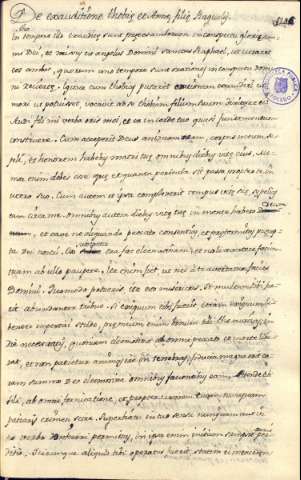 De exauditione thobis et Annæ filiæ Raguelis
In tempore illo exauditæ sunt preces amborum in conspectu gloriæ sum
mi Dei, et missus est angelus Domini sanctus Raphael, ut curaret
eos ambos, quorum uno tempore sunt orationes in conspectu domi
ni
Igitur cum thobias putaret orationem exaudiri ut
mori potuisset, vocavit ad se thobiam filium suum dixitque ei
Audi fili mi verba oris mei, et ea in corde tuo quasi fundamentum
construe. Cum acceperit Deus animam meam, corpus meum sepe
li, et honorem habebis matri tuæ omnibus diebus vitæ eius. Me
mor enim debes esse, quæ et quanta pericula sit passa propter te in
utero suo. Cum autem et ipsa compleverit tempus vitæ suæ, sepelias
eam circa me. Omnibus autem diebus vitæ tuæ in mente habeto Deum
et cave ne aliquando peccato consentias, et prætermittas præcep
ta Dei nostri. Ex substantia tua fac eleemosinam, et noli avertere faciem
tuam ab ullo paupere, ita enim fiet, ut nec à te avertatur facies
Domini. Quomodo potueris, ita esto misericors. Si multum tibi fue
rit abundanter tribue. Si exiguum tibi fuerit, etiam exiguum li
benter impertiri stude, præmium enim bonum tibi thesaurizas in
die necessitatis, quoniam eleemosina ab omni peccato et morte libe
rat, et non patietur animam ire in tenebras, fiducia magna erit co
ram summo Deo eleemosina omnibus facientibus eam. Attende tibi
fili, ab omni fornicatione, et præter uxorem tuam nunquam
patiaris crimen scire. Superbiam in tuo sensu nunquam aut in
tuo verbo dominari permittas, in ipsa enim initium sumpsit omnis per
ditio. Quicumque aliquid tibi operatus fuerit statim ei mercedem